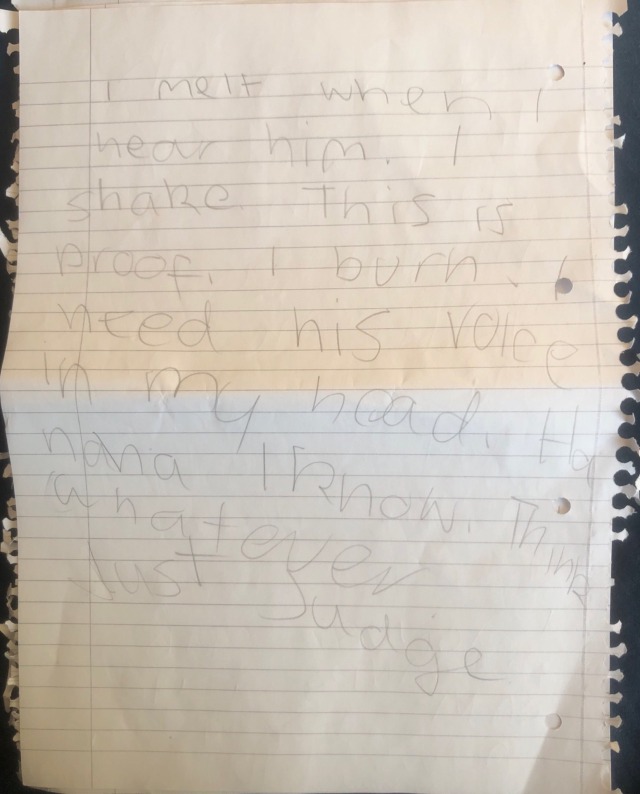 I melt when I
hear him. I
shake This is
proof. I burn. I
need his voice
in my head. Ha
haha I know. Think
whatever
Just Judge